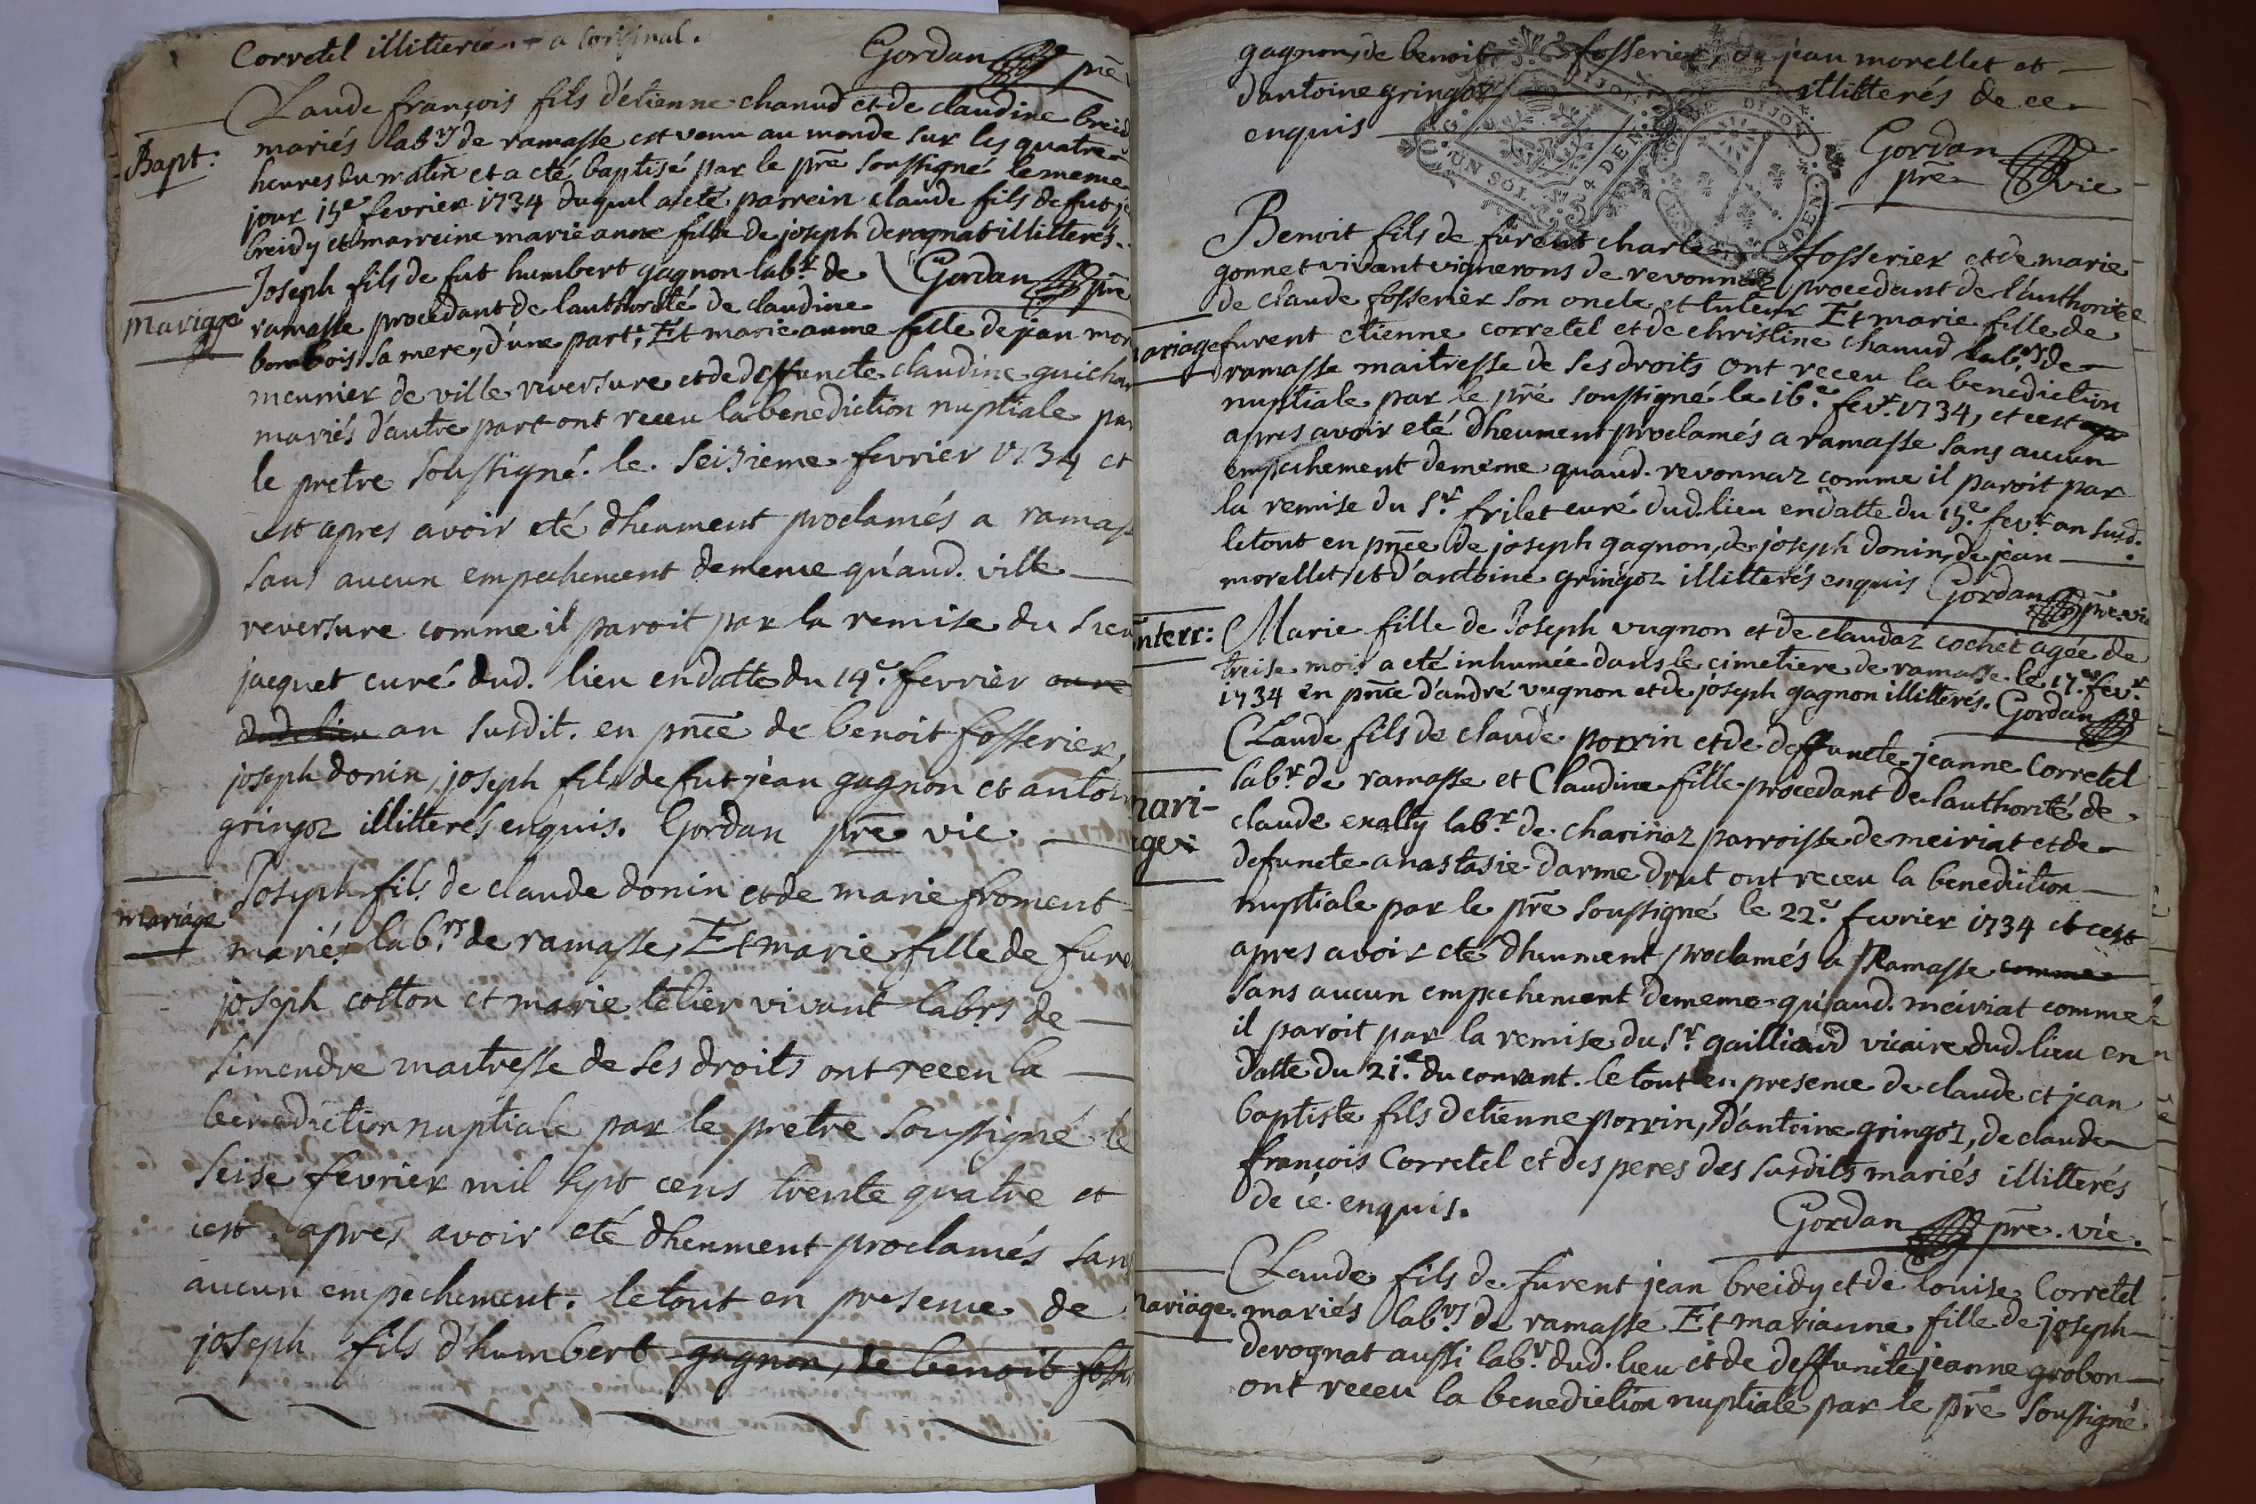 Corretel illitterés a loriginal.
Gordan pre
Bapt:
Claude françois fils d'étienne chanud et de claudine breidy
mariés lab.rs de ramasse est venu au monde sur les quatre
heures du matin et a eté baptisé par le pre soussigné le meme
jour 15e fevrier 1734 duquel a eté parrein claude fils de fut
breidy et marreine marie anne fille de joseph derognat illitterés.
Gordan pre
Mariage
Joseph fils de fut humbert gagnon lab.r de
ramasse procedant de lauthorité de claudine
bombois sa mere, d'une part, Et marie anne fille de jean mor
meunier de ville reversure et de deffuncte claudine guichar
mariés d'autre part ont receu la benediction nuptiale par
le pretre soussigné. le. seizieme fevrier 1734 et
cest apres avoir eté dheument proclamés a ramasse
sans aucun empechement de meme qu'aud. ville
reversure comme il paroit par la remise du sieur
jacquet curé dud. lieu en datte du 14.e fevrier
dud lieu an susdit. en pnce de benoit fosserier,
joseph donin, joseph fils de fut jean gagnon et antoi
gringoz illitterés enquis. Gordan pre vic
mariage
Joseph fils de claude donin et de marie froment
mariés lab.rs de ramasse, Et marie fille de fure
joseph cotton et marie telier vivant labrs de
simandre maitresse de ses droits ont receu la
benediction nuptiale par le pretre soussigné le
seise fevrier mil sept cens trente quatre et
cest apres avoir eté dheument proclamés sans
aucun empechement. le tout en presence de
joseph fils d'humbert gagnon, de benoit foss
gagnon, de benoit fosserier, de jean morellet et
dantoine gringoz illitterés de ce
enquis
Gordan
pre vic
Benoit fils de furent charles fosserier et de marie
gonnet vivant vignerons de revonnaz procedant de l'authorité
de claude fosserier son oncle et tuteur Et marie fille de
mariage
furent etienne corretel et de christine chanud lab.rs de
ramasse maitresse de ses droits ont receu la benediction
nuptiale par le pre soussigné le 16.e fevr. 1734, et cest
apres avoir eté dheument proclamés a ramasse sans aucun
empechement de meme quaud. revonnaz comme il paroit par
la remise du s.r frilet curé dud. lieu en datte du 15.e fevr. an susd.
le tout en pnce de joseph gagnon, de joseph donin, de jean
morellet, et d'antoine gringoz illitterés enquis Gordan pre. vic
enterr:
Marie fille de Joseph vugnon et de claudaz cochet agée de
treise mois a eté inhumée dans le cimetiere de ramasse le 17.e fevr.
1734 en pnce d'andré vugnon et de joseph gagnon illitterés. Gordan
mari-
age:
Claude fils de claude porrin et de deffuncte jeanne Corretel
lab.r de ramasse et Claudine fille procedant de lauthorité de
claude exalty lab.r de charinaz parroisse de meiriat et de
defuncte anastasie darme drut ont receu la benediction
nuptiale par le pre soussigné le 22.e fevrier 1734 et cest
apres avoir eté dheument proclamés a Ramasse comme
sans aucun empechement de meme qu'aud. meiriat comme
il paroit par la remise du s.r gailliaud vicaire dud. lieu en
datte du 21.e du courant. le tout en presence de claude et jean
baptiste fils detienne porrin, d'antoine gringoz, de claude
françois Corretel et des peres des susdits mariés illitterés
de ce enquis.
Gordan pre. vic.
mariage.
Claude fils de furent jean breidy et de louise Corretel
mariés lab.rs de ramasse Et marianne fille de joseph
derognat aussi lab.r dud. lieu et de deffuncte jeanne grobon
ont receu la benediction nuptiale par le pre soussigné